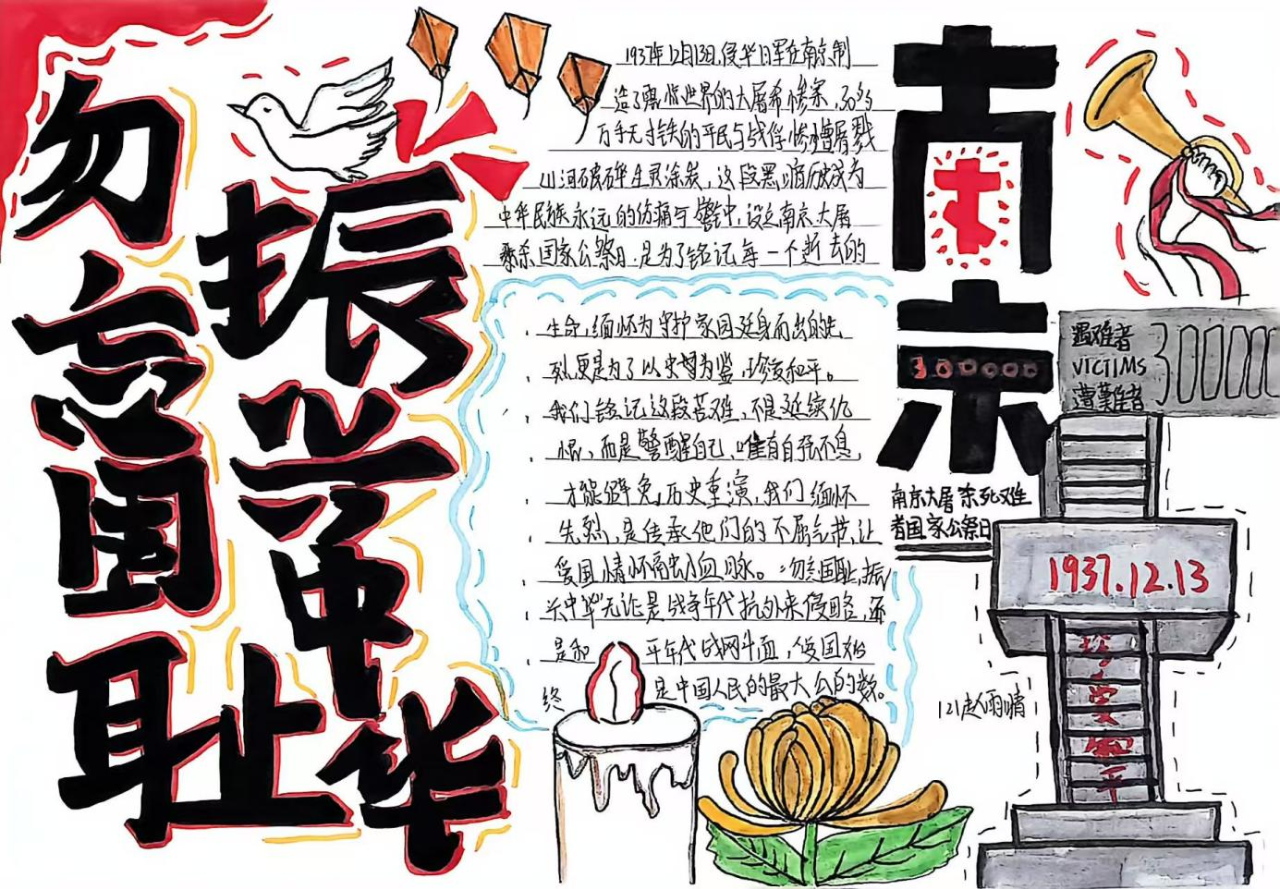 勿忘国耻
振兴中华
1937年12月13日,侵华日军在南京制
造了震惊世界的大屠杀惨案,30多
万手无寸铁的平民与战俘惨遭屠戮
山河破碎生灵涂炭,这段黑暗历史成为
中华民族永远的伤痛与警钟,设立南京大屠
杀国家公祭日,是为了铭记每一个逝去的
生命,缅怀为守护家国挺身而出的先
烈,更是为了以史为鉴,珍爱和平。
我们铭记这段苦难,不是延续仇
恨,而是警醒自己,唯有自强不息,
才能避免历史重演,我们缅怀
先烈,是传承他们的不屈气节,让
爱国情怀融入血脉。勿忘国耻,振
兴中华无论是战争年代抗外来侵略,还
是和平年代战网斗面,爱国始
终是中国人民的最大公的数。
南京
300000
南京大屠杀死难
者国家公祭日
遇难者
VICTIMS
遭難者
300000
1937.12.13
珍爱和平
121赵雨晴